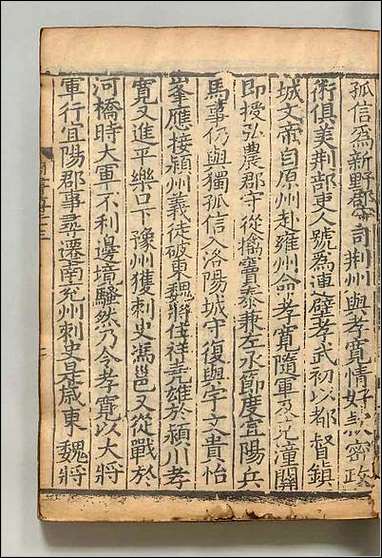 孤信爲新野郡守司荆州與孝寛情好密政
術俱美荆部吏人號爲連璧孝武初以都督鎮
城文帝自原州赴雍州命孝寛隨軍及克潼關
即授弘農郡守從擒竇泰兼左丞節度宜陽兵
馬事仍與獨孤信入洛陽城守復與宇文貴怡
峯應接潁州義徒破東魏將任祥堯雄於潁川孝
寛又進平樂口下豫州獲刺史馮邕又從戰於
河橋時大軍不利邊境騷然乃令孝寛以大將
軍行宜陽郡事尋遷南兖州刺史是歲東魏將